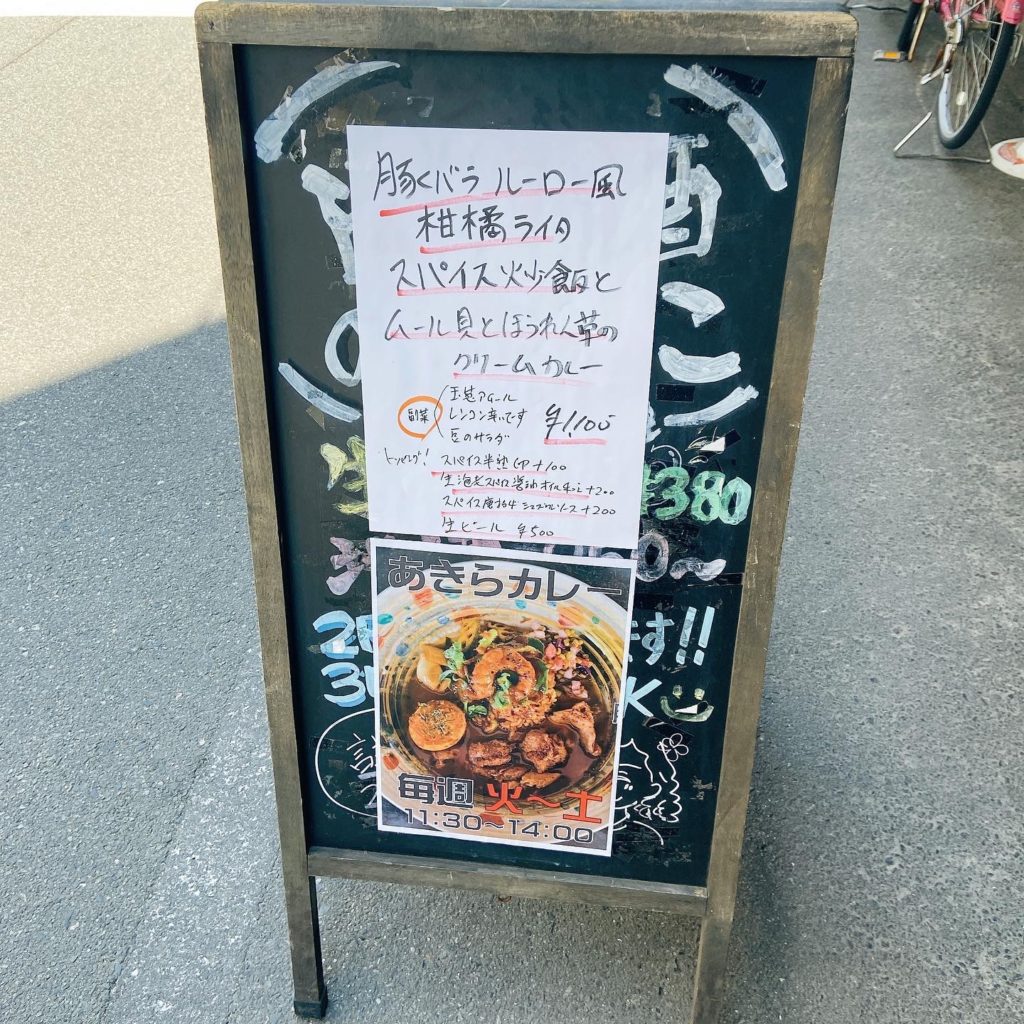 豚バラ ルーロー風
柑橘ライタ
スパイス炒飯と
ムール貝とほうれん草の
クリームカレー
副菜
玉葱アチャール
レンコン辛いです
豆のサラダ
¥1,100
トッピング!
スパイス半熟 +100
生海老スパイス醤油オイル +200
スパイス唐揚げ ソース +200
生ビール ¥500
酒
¥380
ます!!
OK
あきらカレー
毎週 火~土
11:30~14:00